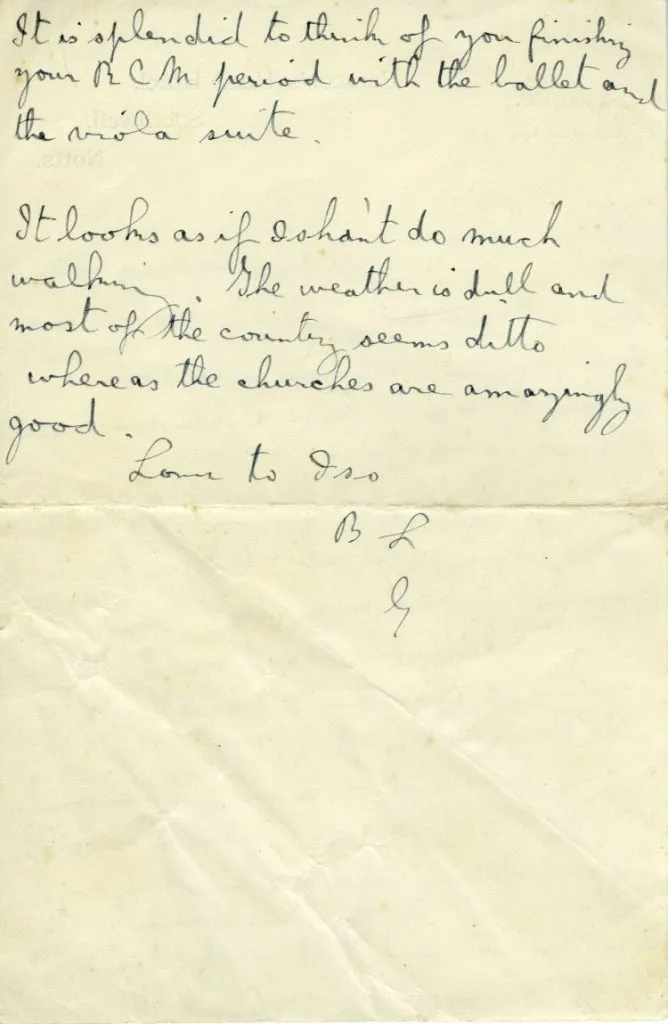 It is splendid to think of you finishing
your R C M period with the ballet and
the viola suite.
It looks as if I shan't do much
walking. The weather is dull and
most of the country seems ditto
whereas the churches are amazingly
good.
Love to Iso
B L
G